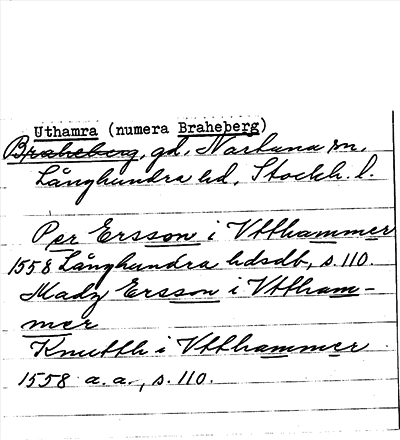 Uthamra (numera Braheberg)
Braheberg, gd, Narluna sn,
Långhundra hd, Stockh. l.
Per Ersson i Vtthammer
1558 Långhundra hdsdb, s. 110.
Madz Ersson i Vttham-
mer
Knutth i Vtthammer
1558 a.a., s. 110.